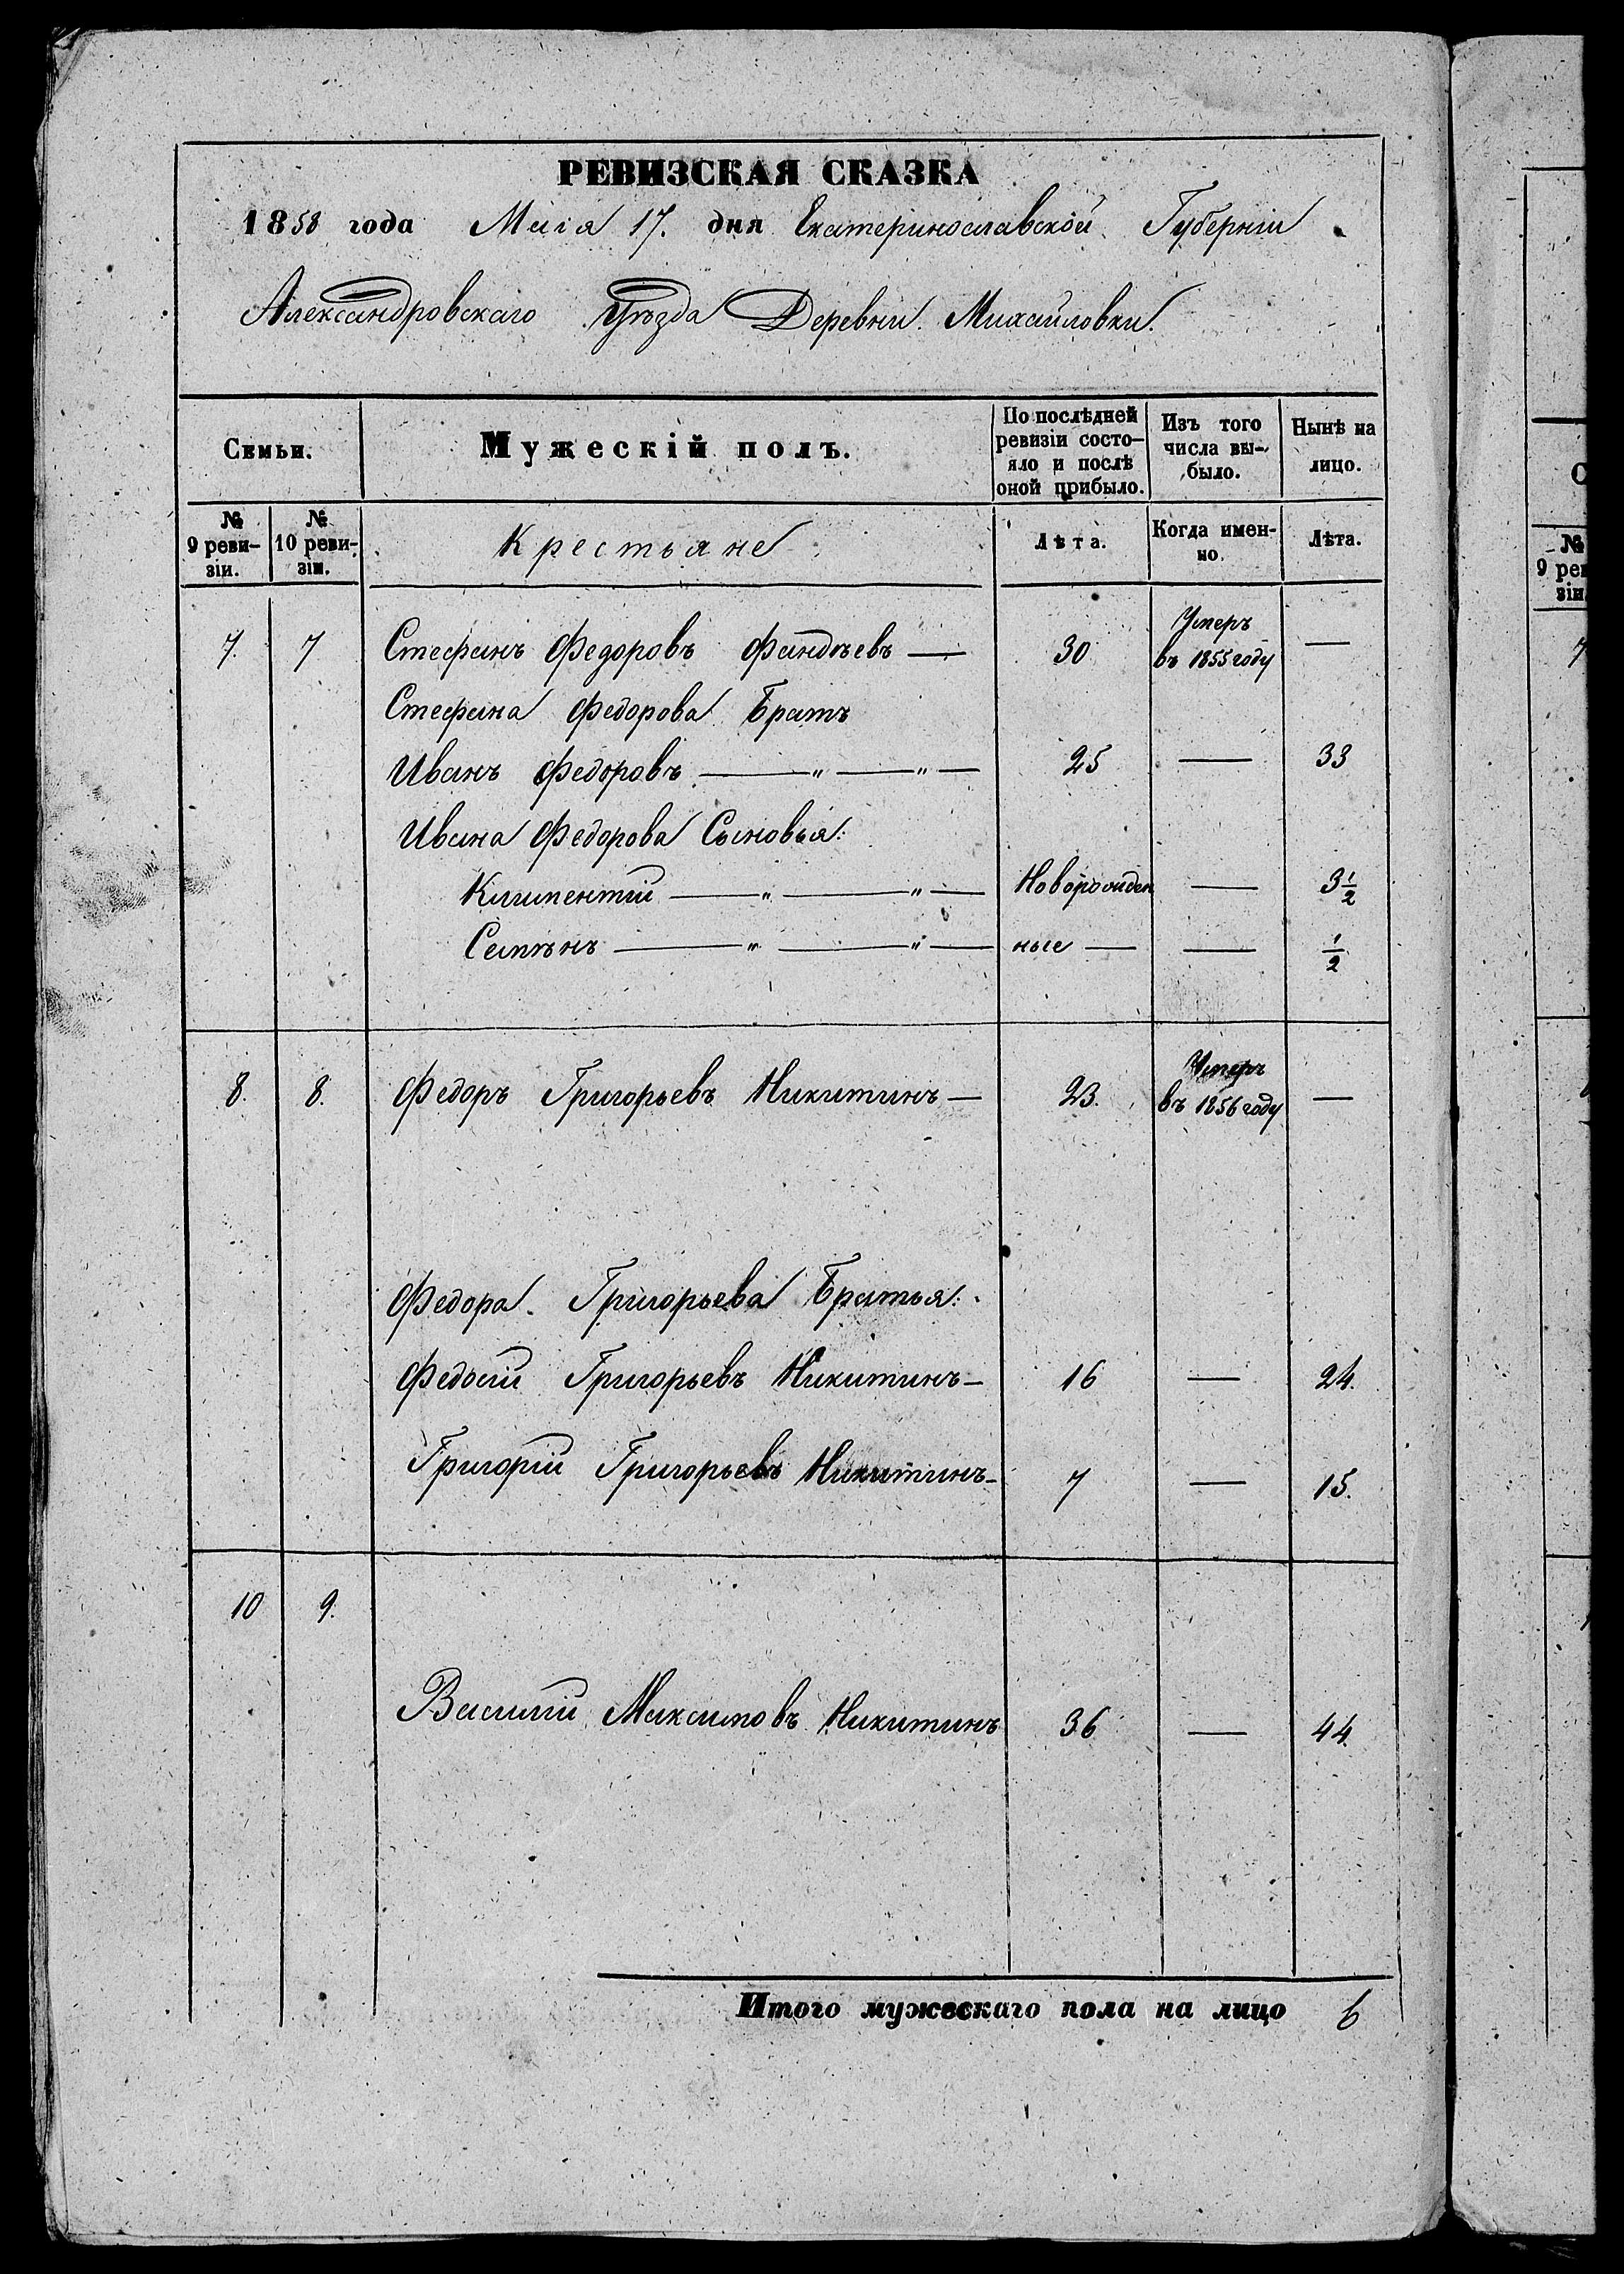 РЕВИЗСКАЯ СКАЗКА
1858 года Маія 17. дня Екатеринославской Губерніи
Александровскаго Уѣзда Деревни Михайловки.
Семьи. Мужескій полъ. По послѣдней ревизіи состо- яло и послѣ оной прибыло. Изъ того числа вы- было. Нынѣ на лицо.
№ 9 реви- зіи. № 10 реви- зіи. Крестьяне Лѣта. Когда имен- но. Лѣта.
7. 7 Стефанъ Федоровъ Фандѣевъ — 30 Умеръ въ 1855 году —
Стефана Федорова Братъ
Иванъ Федоровъ — " — " — 25 — 33
Ивана Федорова Сыновья:
Климентій — " — " — Новорожден — 3 1/2
Семѣнъ — " — " — ные — — 1/2
8. 8. Федоръ Григорьевъ Никитинъ — 23. Умеръ въ 1856 году —
Федора Григорьева Братья:
Федосій Григорьевъ Никитинъ — 16 — 24.
Григорій Григорьевъ Никитинъ — 7 — 15.
10 9.
Василій Максимовъ Никитинъ 36 — 44.
Итого мужескаго пола на лицо 6
№
9 рев
зіи
7